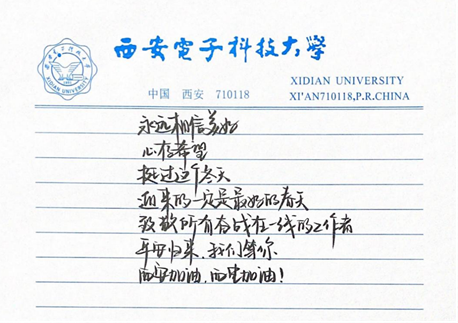 西安电子科技大学
XIDIAN UNIVERSITY
西安電子科技大學
中国 西安 710118
XIDIAN UNIVERSITY
XI'AN710118,P.R.CHINA
永远相信美好
心存希望
挺过这个冬天
迎来的一定是最好的春天
致敬所有奋战在一线的工作者
平安归来，我们等你
西安加油，西电加油！